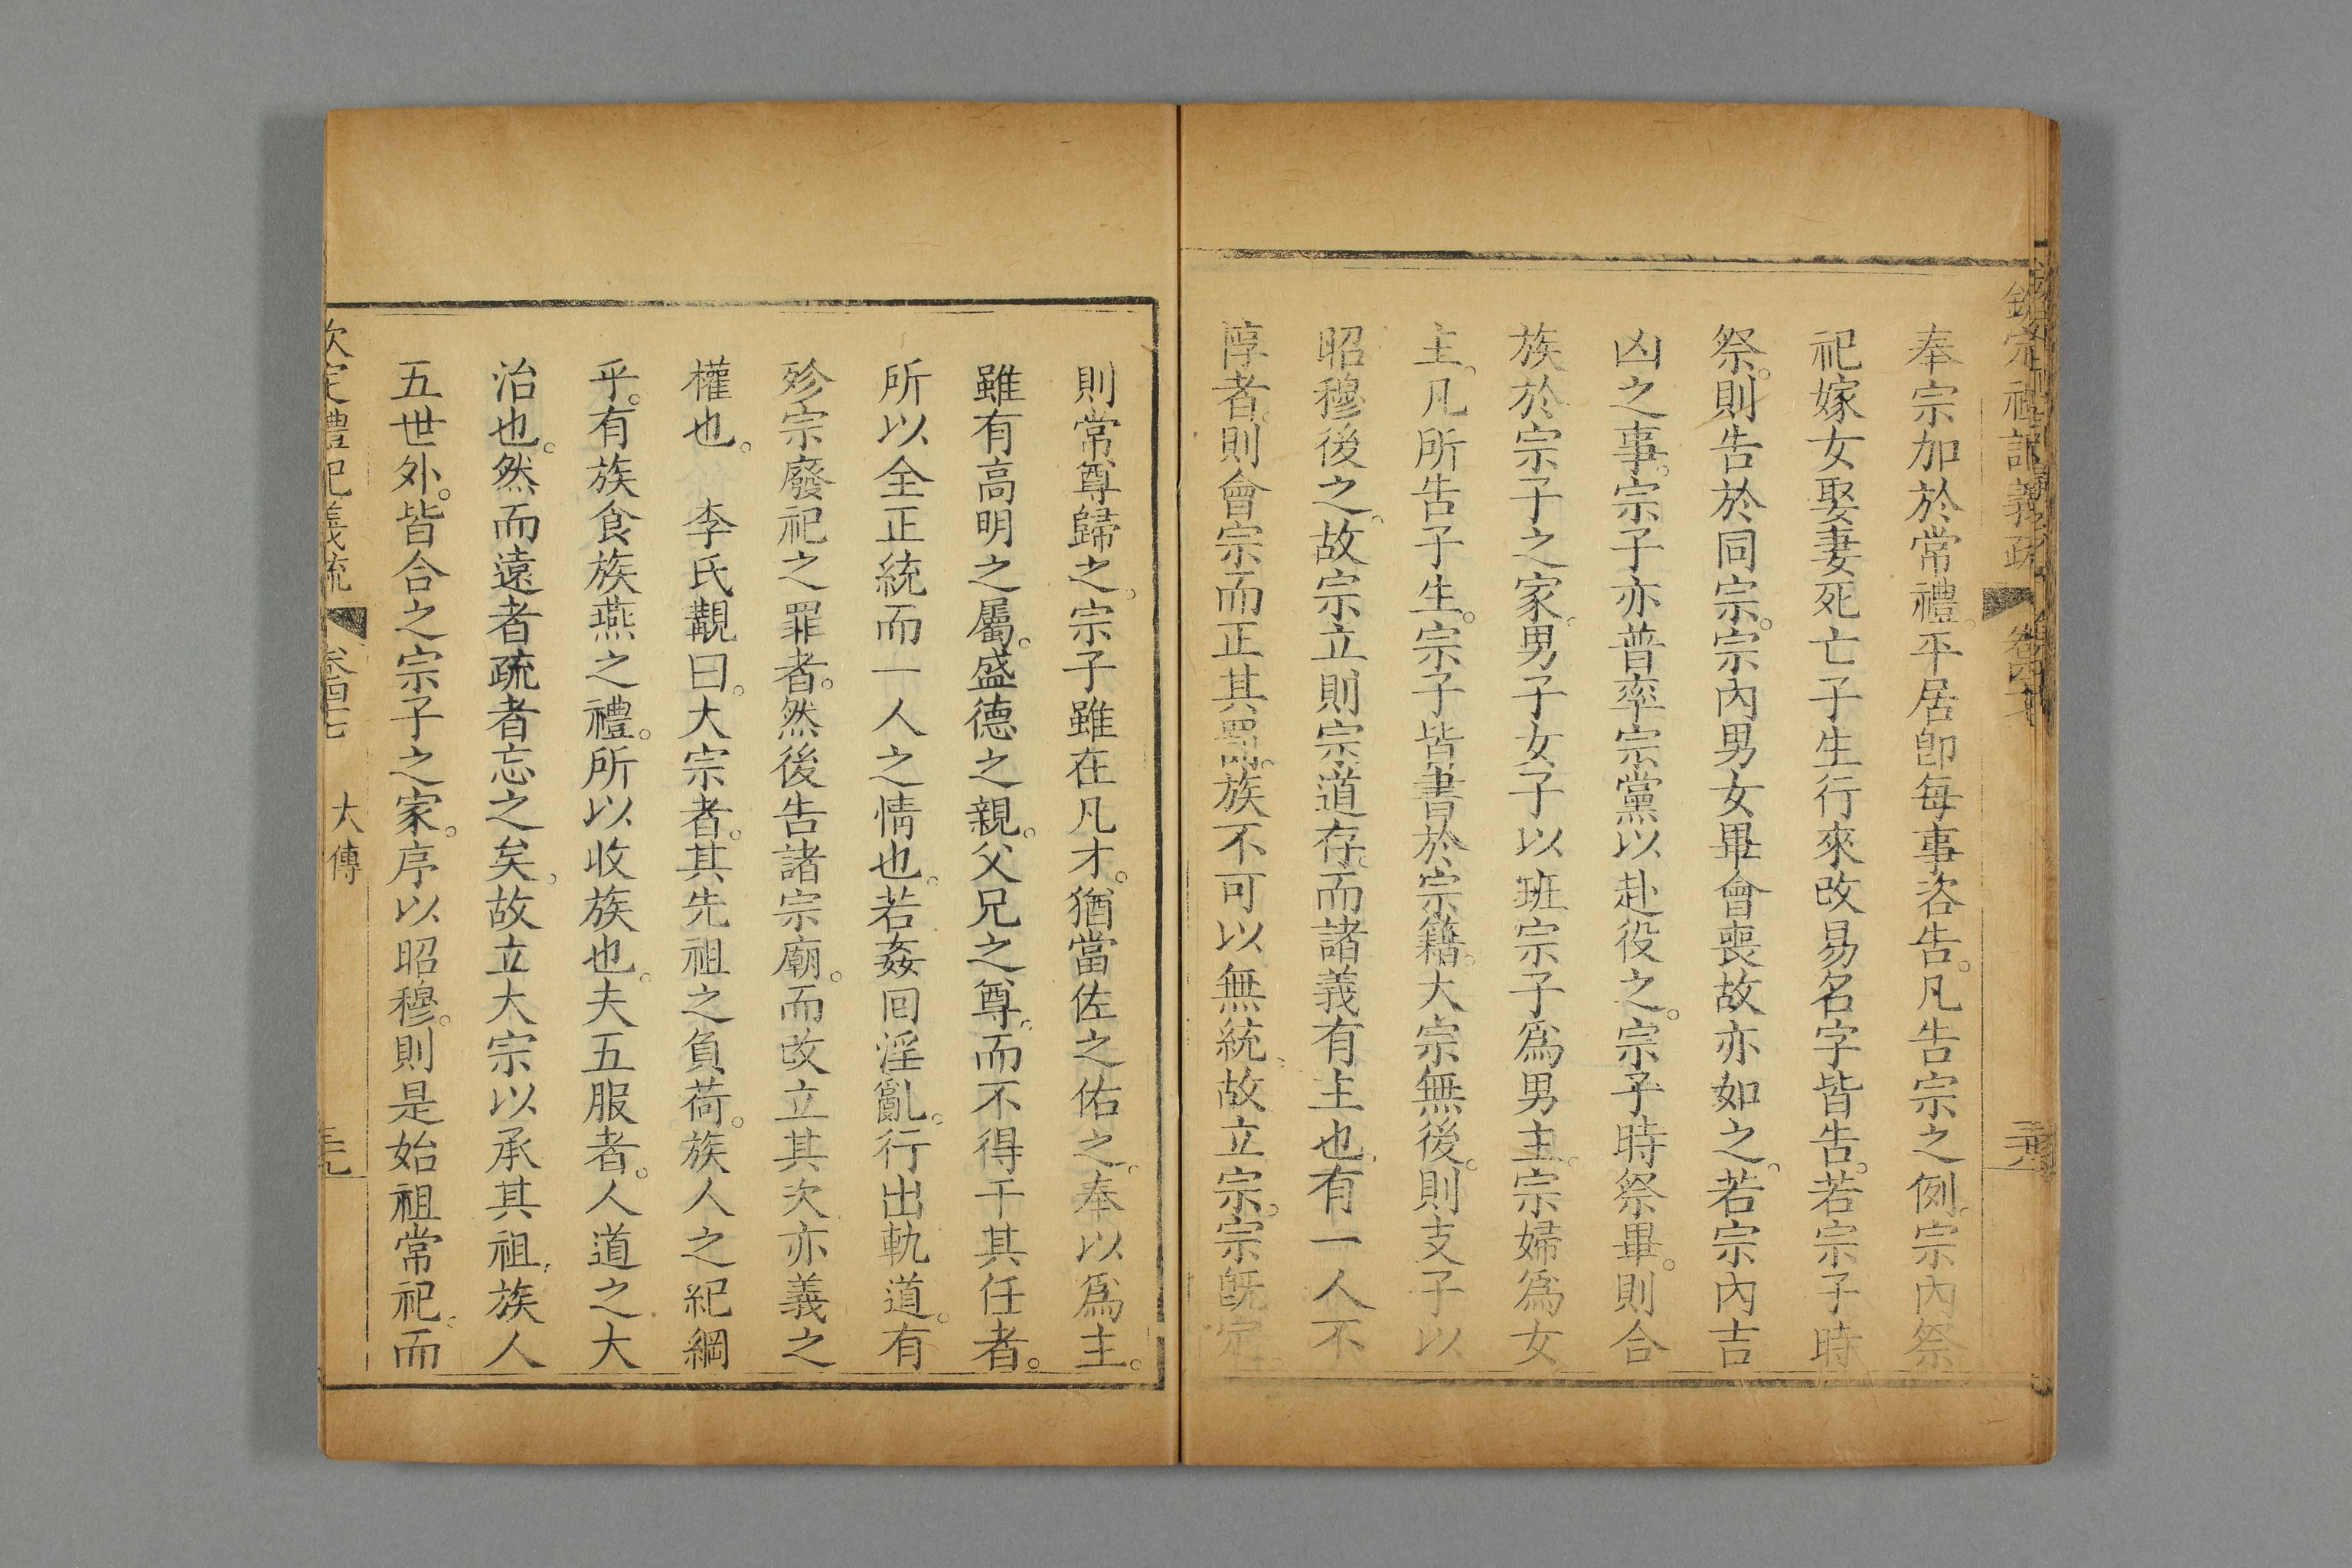 欽定禮記義疏 卷四十七
奉宗加於常禮。平居卽每事咨告。凡告宗之例。宗內祭
祀嫁女娶妻死亡子生行來改易名字皆告。若宗子時
祭。則告於同宗。宗內男女畢會喪故亦如之。若宗內吉
凶之事。宗子亦普率宗黨以赴役之。宗子時祭畢。則合
族於宗子之家。男子女子以班宗子爲男主。宗婦爲女
主。凡所告子生。宗子皆書於宗籍。大宗無後。則支子以
昭穆後之。故宗立則宗道存。而諸義有主也。有一人不
惇者。則會宗而正其罰。族不可以無統。故立宗。宗旣定
則常尊歸之。宗子雖在凡才。猶當佐之佑之。奉以爲主。
雖有高明之屬。盛德之親。父兄之尊。而不得干其任者。
所以全正統而一人之情也。若姦回淫亂。行出軌道。有
殄宗廢祀之罪者。然後告諸宗廟。而改立其次亦義之
權也。 李氏觀曰。大宗者。其先祖之負荷。族人之紀綱
乎。有族食族燕之禮。所以收族也。夫五服者。人道之大
治也。然而遠者疏者忘之矣。故立大宗以承其祖。族人
五世外。皆合之宗子之家。序以昭穆。則是始祖常祀。而
欽定禮記義疏 卷四十七 大傳